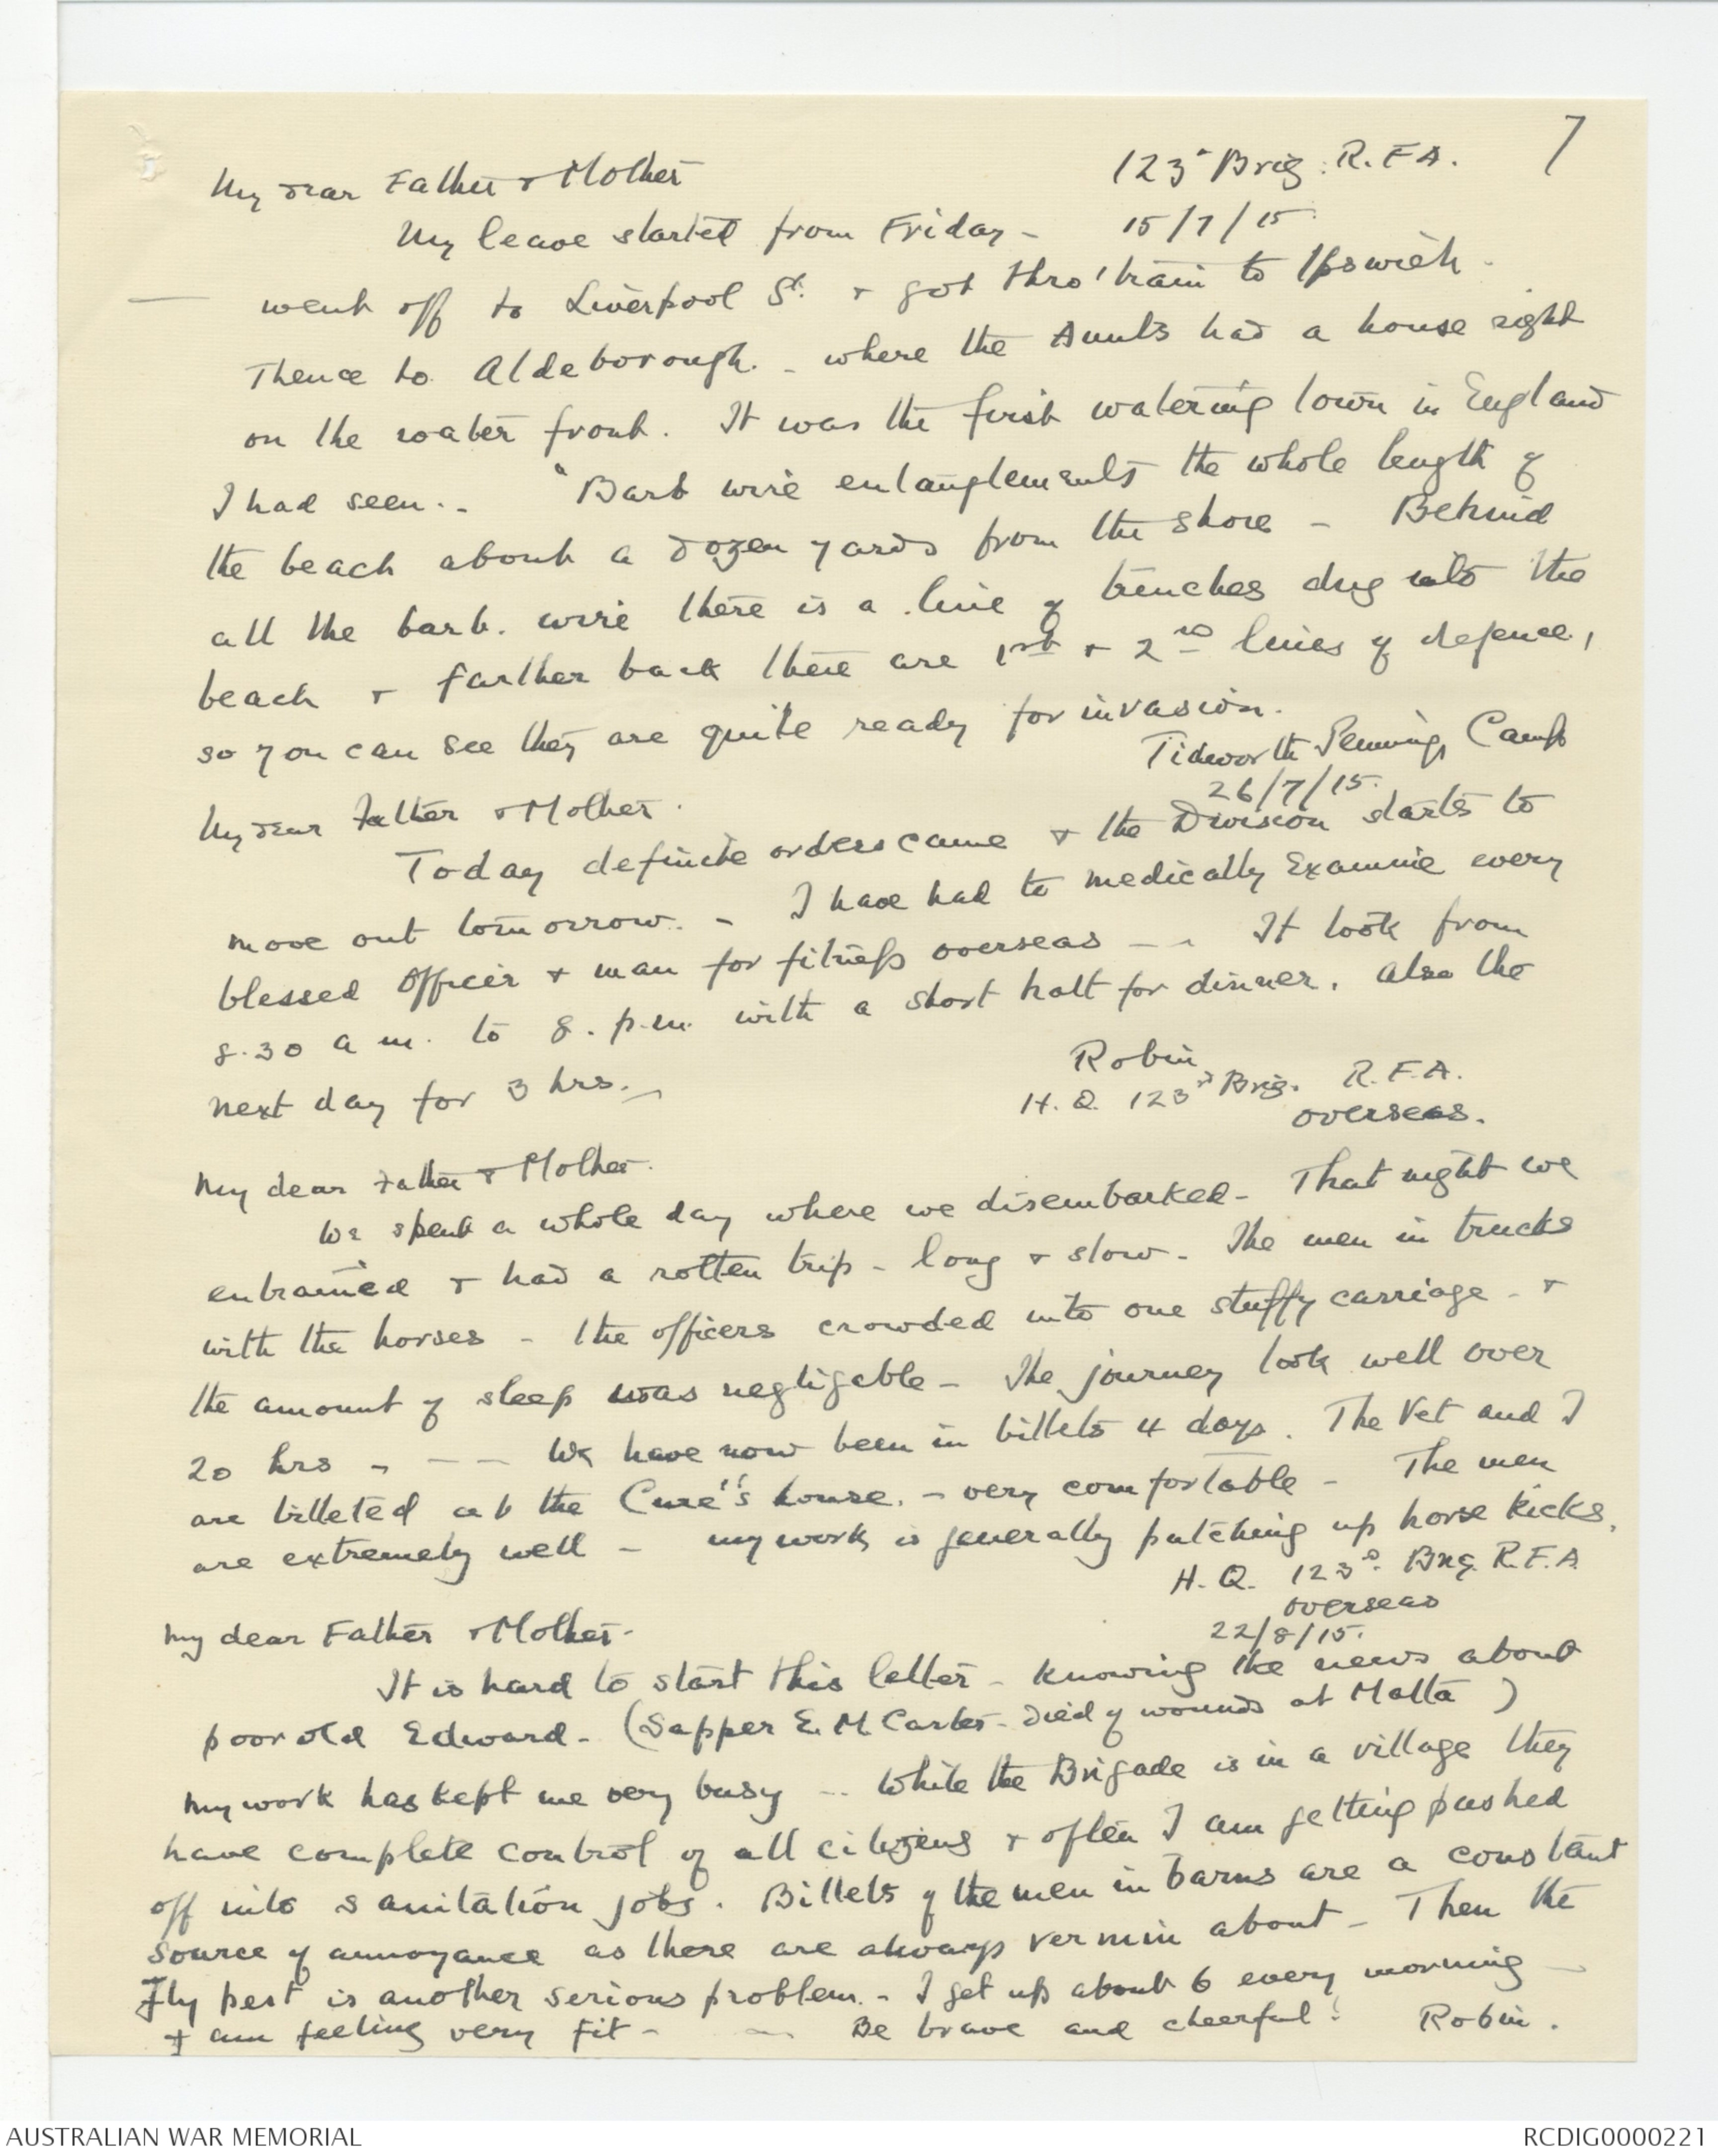 7
123d Brig. R.F.A.
My dear Father & Mother
15/7/15
My leave started from Friday -
went off to Liverpool St. & got thro' train to Ipswich.
Thence to Aldeborough. - where the Aunts had a house right
on the water front. It was the first watering town in England
I had seen.. "Barb wire entanglements the whole length of
the beach about a dozen yards from the shore - Behind
all the barb. wire there is a line of trenches dug into the
beach & farther back there are 1st & 2nd lines of defence,
so you can see they are quite ready for invasion.
Tidworth Penning Camp
26/7/15.
My dear Father & Mother.
Today definite orders came & the Division starts to
move out tomorrow. - I have had to medically Examine every
blessed Officer & man for fitness overseas -- It took from
8.30 a m. to 8. p.m. with a short halt for dinner. also the
next day for 3 hrs.
Robin
H. Q. 123d Brig. R.F.A.
overseas.
My dear Father & Mother.
We spent a whole day where we disembarked - That night we
entrained & had a rotten trip - long & slow. The men in trucks
with the horses - the officers crowded into one stuffy carriage - &
the amount of sleep was negligable - The journey took well over
20 hrs - -- We have now been in billets 4 days. The Vet and I
are billeted at the Cure's house. - very comfortable - The men
are extremely well - my work is generally patching up horse kicks.
H.Q. 123d. Brig. R.F.A.
overseas
22/8/15.
My dear Father & Mother.
It is hard to start this letter - knowing the news about
poor old Edward - (Sapper E. M Carter - Died of wounds at Malta)
My work has kept me very busy -- While the Brigade is in a village they
have complete control of all citizens & often I am getting pushed
off into sanitation jobs. Billets of the men in barns are a constant
source of annoyance as there are always vermin about - Then the
Fly pest is another serious problem. - I get up about 6 every morning -
& am feeling very fit - - Be brave and cheerful! Robin.
AUSTRALIAN WAR MEMORIAL
RCDIG0000221